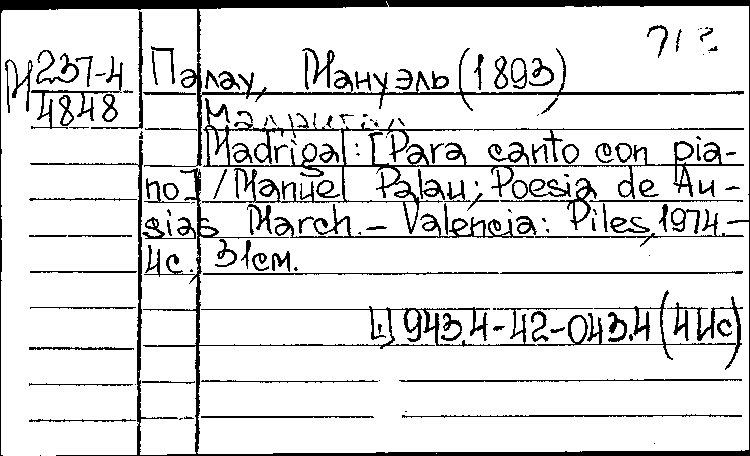 713
М 237-4
4848
Палау, Мануэль (1893)
Мадригал
Madrigal: [Para canto con pia-
no] / Manuel Palau; Poesia de Au-
sias March. — Valencia: Piles, 1974. —
4с., 31см.
Щ 943.4-42-043.4 (4Ис)